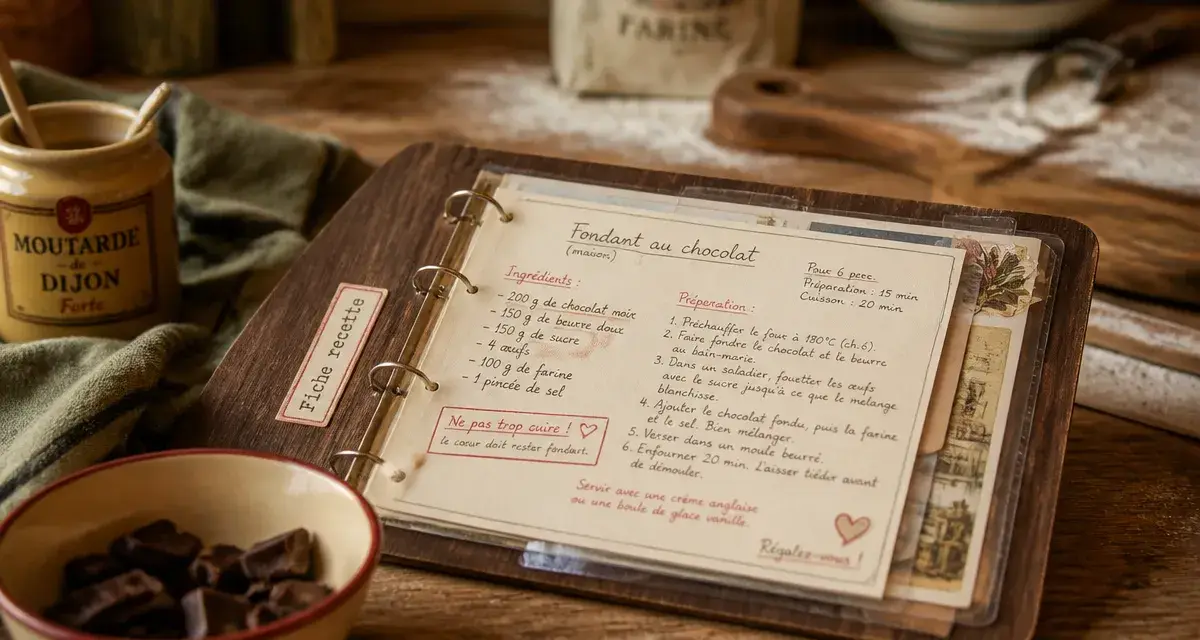 FARINE
MOUTARDE
de
DIJON
Forte
Fiche recette
Fondant au chocolat
(maison)
Ingrédients :
- 200 g de chocolat noir
- 150 g de beurre doux
- 150 g de sucre
- 4 œufs
- 100 g de farine
- 1 pincée de sel
Ne pas trop cuire !
le cœur doit rester fondant.
Pour 6 pers.
Préparation : 15 min
Cuisson : 20 min
Préparation :
1. Préchauffer le four à 180°C (ch.6).
2. Faire fondre le chocolat et le beurre
au bain-marie.
3. Dans un saladier, fouetter les œufs
avec le sucre jusqu'à ce que le mélange
blanchisse.
4. Ajouter le chocolat fondu, puis la farine
et le sel. Bien mélanger.
5. Verser dans un moule beurré.
6. Enfourner 20 min. Laisser tiédir avant
de démouler.
Servir avec une crème anglaise
ou une boule de glace vanille.
Régalez-vous !